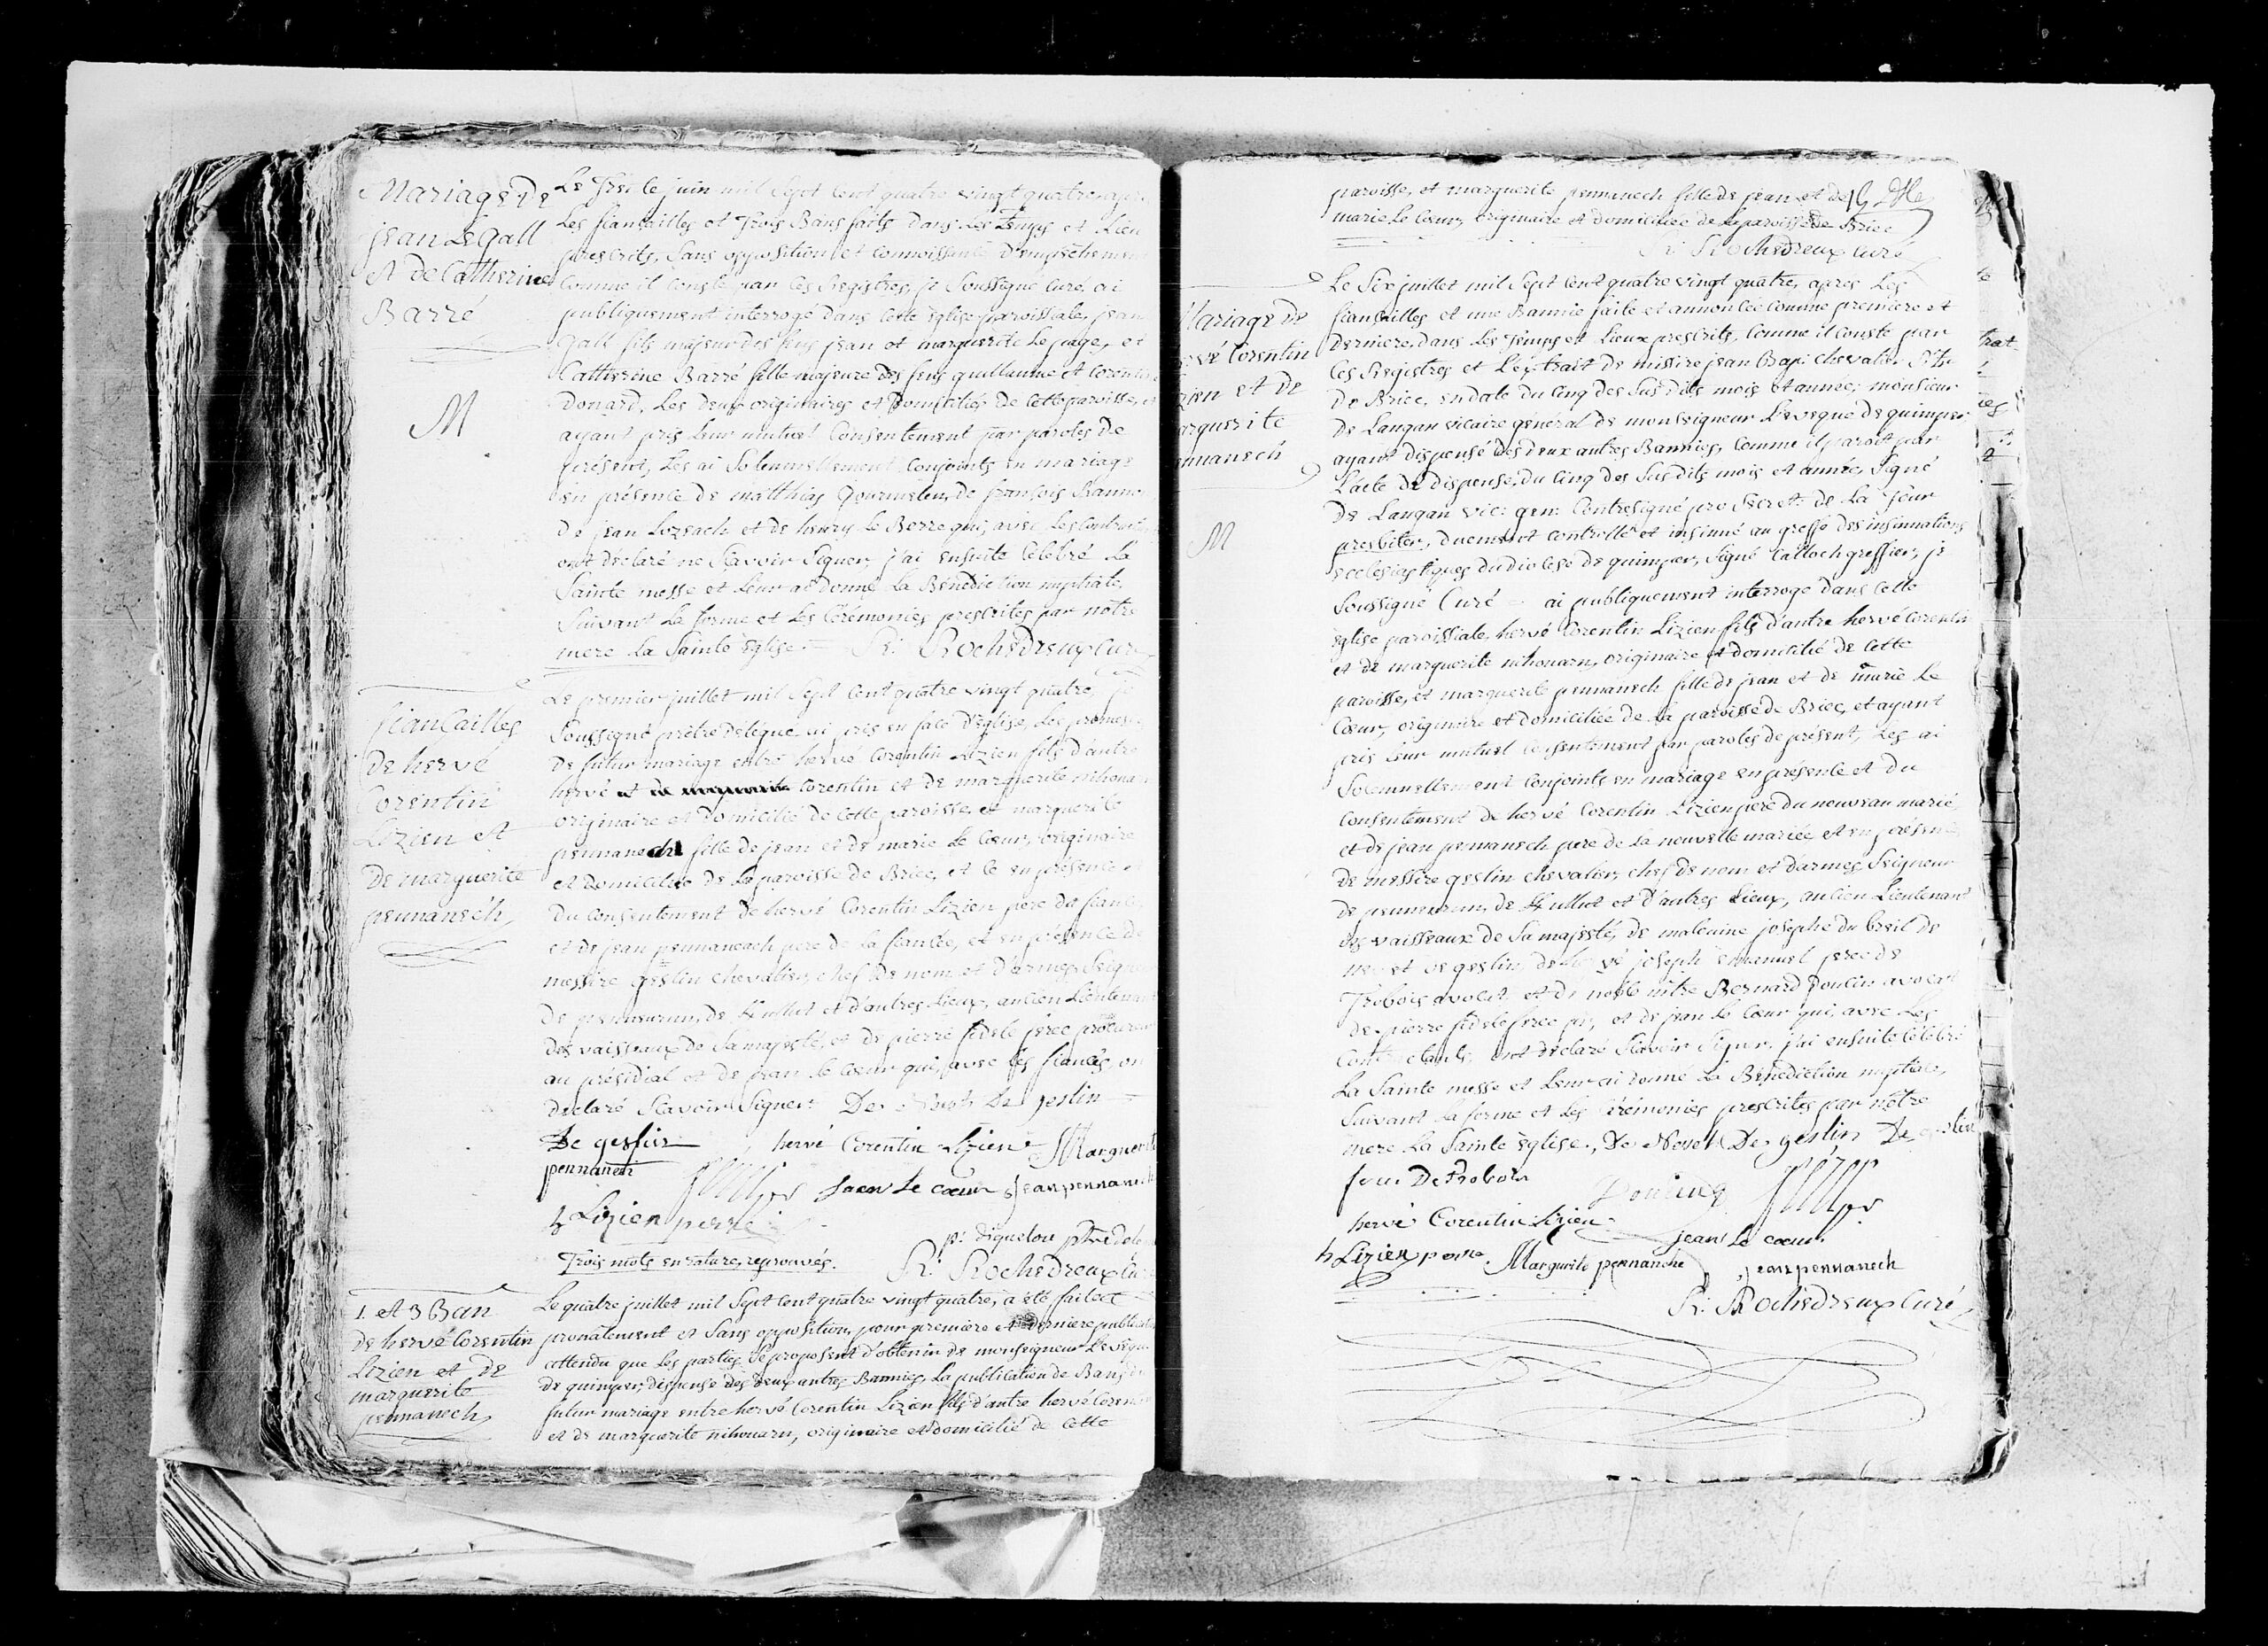 Mariage De
jean Le Gall
et de Catherine
Barré
M
Le Treize juin mil sept cent quatre vingt quatre, après
Les fiançailles et Trois Bans faits Dans Les Temps et Lieux
prescrits, Sans opposition et connoissance D'empêchement
Comme il conste par les Registres, je Soussigné Curé, ai
publiquement interrogé dans cette église paroissiale, jean
Gall fils majeur des feus jean et marguerite Le page, et
Catherine Barré fille majeure des feus guillaume et Corentine
Donard, Les Deux originaires et Domiciliés de Cette paroisse, et
ayant pris Leur mutuel Consentement par paroles De
présent, Les ai Solemnellement conjoints en mariage
en présence De matthias De françois
De jean Lozeach et De henry Le Berre qui, avec Les Contract
ont déclaré ne Scavoir Signer, j'ai ensuite Célébré La
Sainte messe et Leur ai Donné La Bénédiction nuptiale,
Suivant La forme et Les Cérémonies prescrites par notre
mere La Sainte église. R: Rochedreux Curé
fiancailles
De hervé
Corentin
Lizien et
De marguerite
pennanech
Le premier juillet mil Sept Cent quatre vingt quatre, je
Soussigné prêtre Délégué ai pris en face D'église, Les promesses
De futur mariage entre hervé Corentin Lizien fils d'autre
hervé Corentin et De marguerite nihouarn
originaire et Domicilié de Cette paroisse, et marguerite
pennanech fille de jean et De marie Le Cœur, originaire
et Domiciliée De La paroisse De Briec, et Ce en présence et
Du Consentement De hervé Corentin Lizien pere du fiancé
et De jean pennaneach pere De La fiancée, et en présence De
messire geslin Chevalier, Chef De nom et D'armes, Seigneur
De penneurun, De et d'autres Lieux, ancien Lieutenant
Des vaisseaux De Sa majesté, et De pierre fidele perec procureur
au présidial et De jean Le Cœur qui, avec Les fiancés, ont
Declaré Scavoir Signer: De De geslin
De geslin hervé Corentin Lizien Marguerite
pennanech jaen Le cœur jean pennanech
h Lizien perre
p: diquelou ptre délé
Trois mots en rature, reprouvés. R: Rochedreux Cu
1. et 3 Ban
De hervé Corentin
Lizien et De
marguerite
pennanech
Le quatre juillet mil Sept Cent quatre vingt quatre, a été faite et
pronalement et Sans opposition pour premiere et derniere publication
attendu que Les parties Se proposent d'obtenir De monseigneur L'evêque
De quimper, dispense des deux autres Bannies, La publication De Bans du
futur mariage entre hervé Corentin Lizien fils d'autre hervé Corentin
et De marguerite nihouarn, originaire et domicilié de Cette
paroisse, et marguerite pennanech fille De jean et de
marie Le Cœur, originaire et domiciliée de La paroisse De Briec
R: Rochedreux Curé
Mariage De
vé Corentin
zien et De
arguerite
nnanech
M
Le Six juillet mil Sept Cent quatre vingt quatre, après Les
fiançailles et une Bannie faite et annoncée Comme premiere et
Derniere, dans Les Temps et Lieux prescrits, Comme il Conste par
Les Registres et L'extrait De missire jean Bap: chevalier
De Briec, en date du Cinq des Sus dits mois et année; monsieur
De Langan vicaire général De monseigneur L'eveque De quimper,
ayant dispensé Des deux autres Bannies, Comme il paroit par
L'acte De dispense, Du Cinq des Sus dits mois et année, Signé
De Langan vic: gen: Contresigné pro Secret: De La
presbiter, duement controllé et insinué au greffe des insinuations
ecclesiastiques du diocese De quimper, Signé Calloch greffier; je
Soussigné Curé - ai publiquement interrogé dans Cette
église paroissiale, hervé Corentin Lizien fils d'autre hervé Corentin
et De marguerite nihouarn, originaire et domicilié De Cette
paroisse, et marguerite pennanech fille De jean et De marie Le
Cœur, originaire et domiciliée De La paroisse De Briec, et ayant
pris Leur mutuel Consentement par paroles De présent, Les ai
Solemnellement Conjoints en mariage en présence et Du
Consentement De hervé Corentin Lizien pere du nouveau marié
et De jean pennanech pere De La nouvelle mariée et en présence
De messire geslin chevalier, chef De nom et D'armes Seigneur
De penneurun, De et D'autres Lieux, ancien Lieutenant
Des vaisseaux De Sa majesté, De malenine josephe du breil De
et De geslin, De joseph emanuel De
Trobois avocat et De noble mtre Bernard poulin avocat
De pierre fidele perec pr, et De jean Le Cœur qui, avec Les
Contractants, ont Déclaré Scavoir Signer, j'ai ensuite Célébré
La Sainte messe et Leur ai donné La Bénédiction nuptiale,
Suivant La forme et Les Cérémonies prescrites par notre
mere La Sainte église, De Nevet De geslin De geslin
De Trobois
hervé Corentin Lizien jean Le cœur
h Lizien perre Marguerite pennaneche jean pennanech
R: Rochedreux Curé